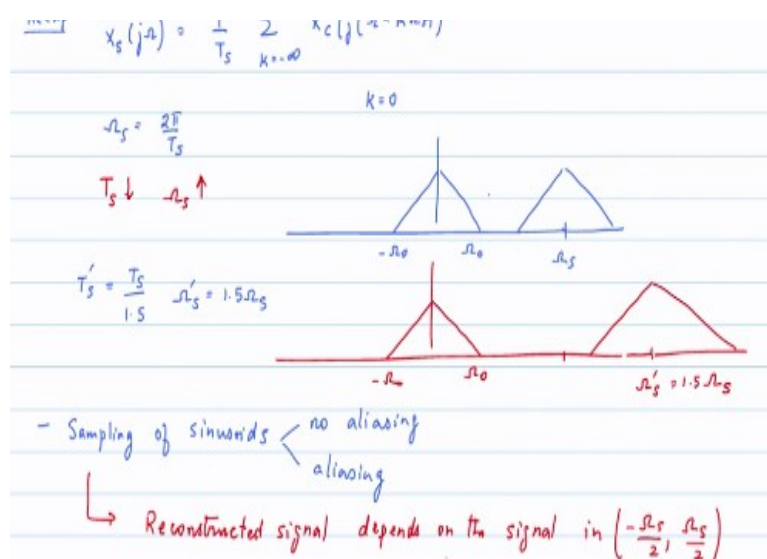 X_s(jΩ) = 1/T_s Σ_{k=-∞} X_c(j(Ω-
k=0
Ω_s = 2π/T_s
T_s ↓ Ω_s ↑
-Ω_0 Ω_0 Ω_s
T_s' = T_s/1.5 Ω_s' = 1.5Ω_s
-Ω_0 Ω_0 Ω_s' = 1.5 Ω_s
- Sampling of sinusoids < no aliasing
aliasing
↳ Reconstructed signal depends on the signal in (-Ω_s/2, Ω_s/2)